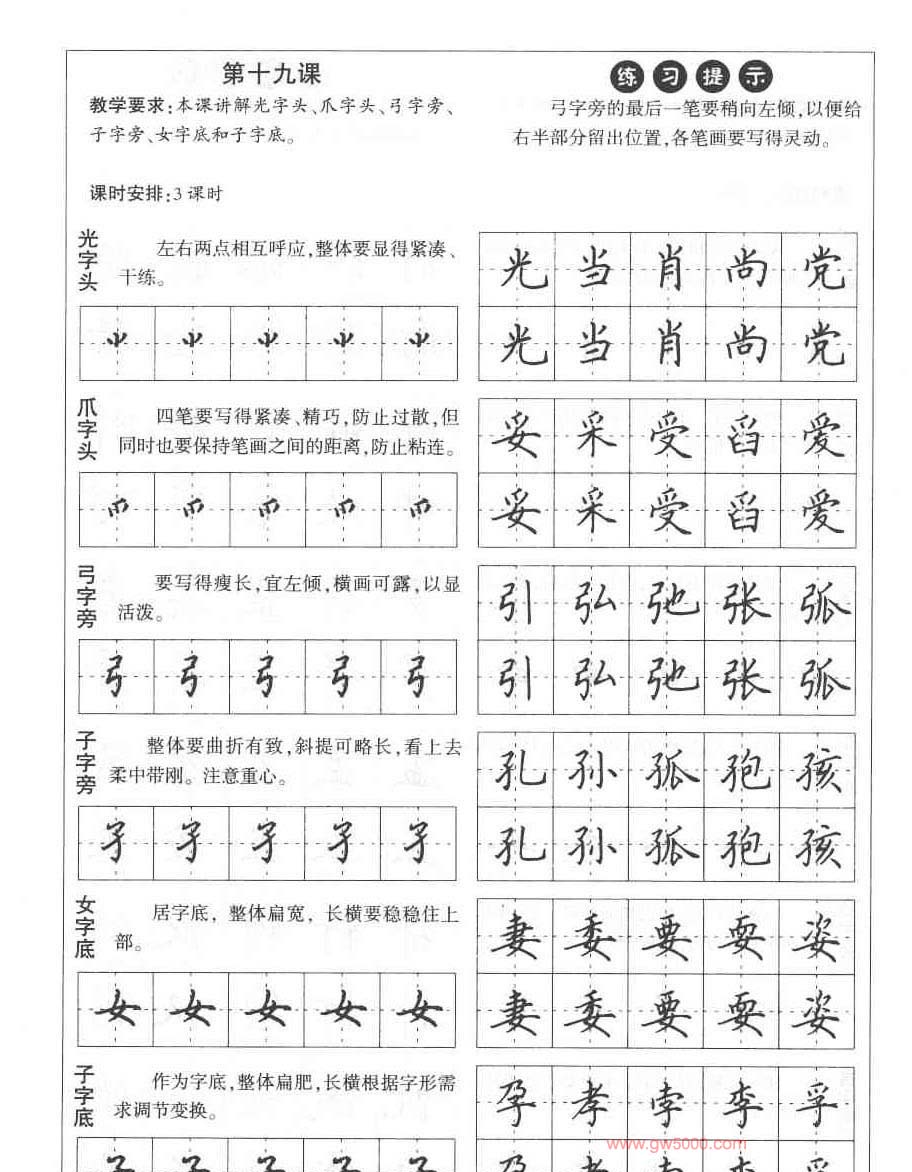 第十九课
教学要求:本课讲解光字头、爪字头、弓字旁、
子字旁、女字底和子字底。
课时安排:3课时
练习提示
弓字旁的最后一笔要稍向左倾,以便给
右半部分留出位置,各笔画要写得灵动。
光字头
左右两点相互呼应,整体要显得紧凑、
干练。
光当肖尚党
光当肖尚党
爪字头
四笔要写得紧凑、精巧,防止过散,但
同时也要保持笔画之间的距离,防止粘连。
爫爫爫爫爫
妥采受舀爱
妥采受舀爱
弓字旁
要写得瘦长,宜左倾,横画可露,以显
活泼。
弓弓弓弓弓
引弘弛张弧
引弘弛张弧
子字旁
整体要曲折有致,斜提可略长,看上去
柔中带刚。注意重心。
子子子子子
孔孙孤孢孩
孔孙孤孢孩
女字底
居字底,整体扁宽,长横要稳稳住上
部。
女女女女女
妻委要耍姿
妻委要耍姿
子字底
作为字底,整体扁肥,长横根据字形需
求调节变换。
孕孝孛李孚
www.gw5000.com